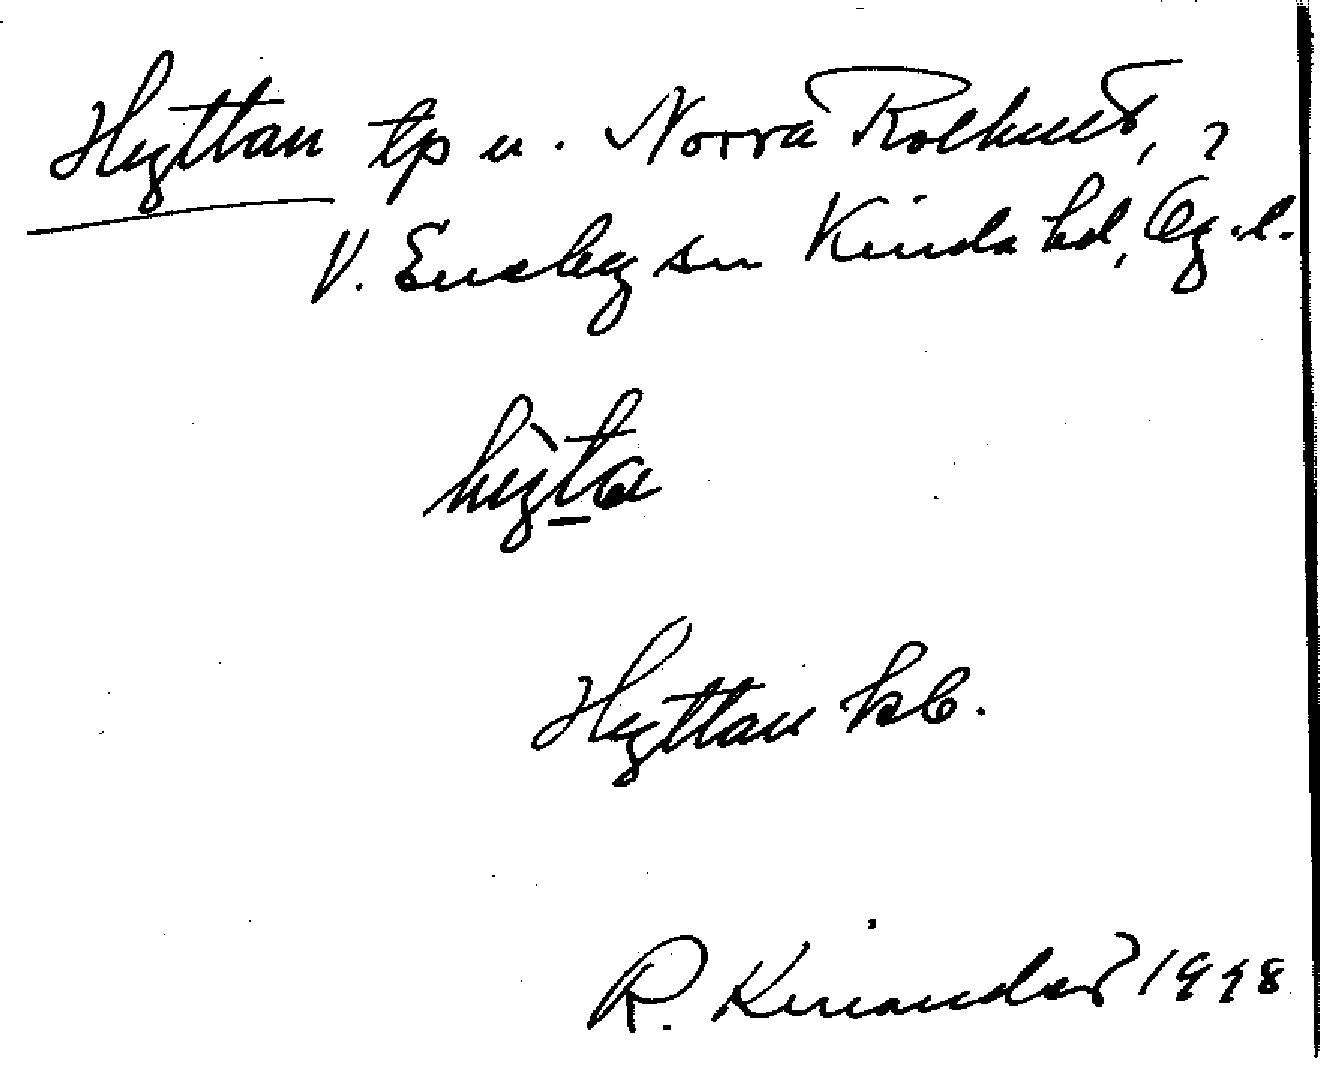 Hyttan tp u. Norra Rolhult, i
V. Eneby sn Kinda hd, Ög. l.
hy̖ta
Hyttan kb.
R. Kinander 1948